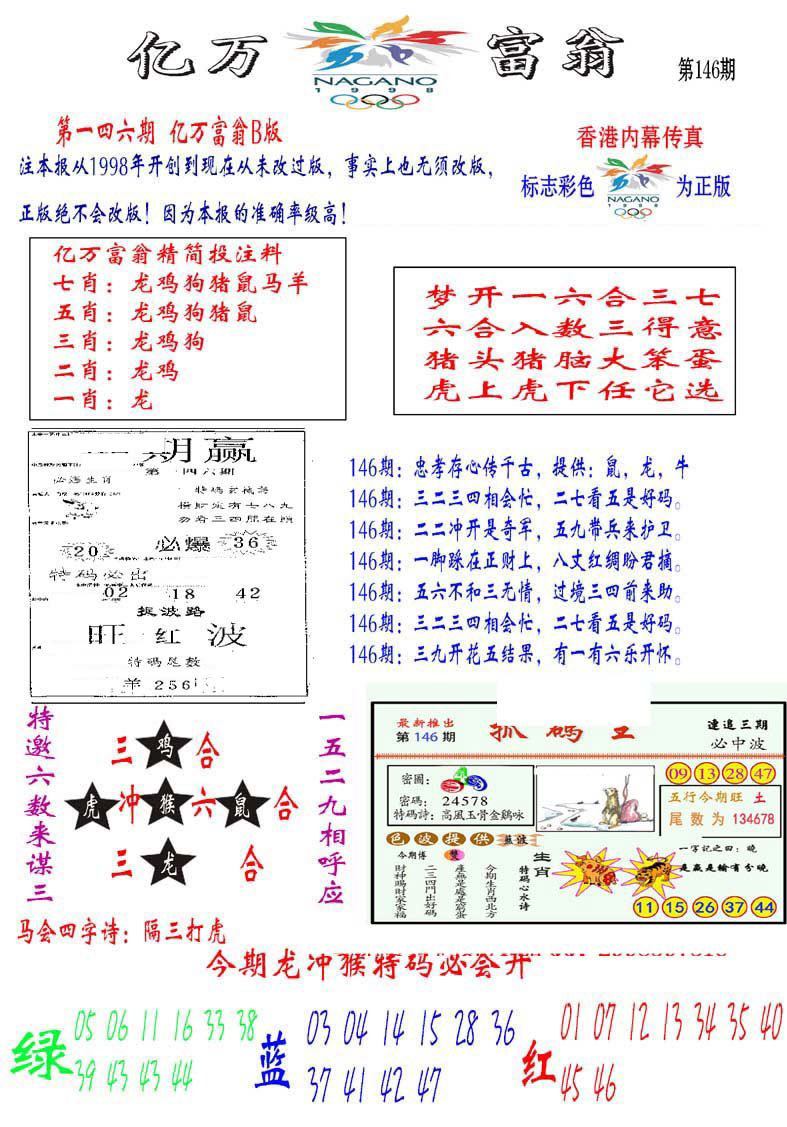 亿万 富翁
NAGANO
1998
第146期
第一四六期 亿万富翁B版
注本报从1998年开创到现在从未改过版，事实上也无须改版，
正版绝不会改版！因为本报的准确率级高！
香港内幕传真
标志彩色 NAGANO 1998 为正版
亿万富翁精简投注料
七肖：龙鸡狗猪鼠马羊
五肖：龙鸡狗猪鼠
三肖：龙鸡狗
二肖：龙鸡
一肖：龙
梦开一六合三七
六合入数三得意
猪头猪脑大笨蛋
虎上虎下任它选
一期赢
第一四六期
必选生肖
特码玄機詩
20 必爆 36
特码必出
02 18 42
捉波路
旺红波
特码尾数
羊 256
146期：忠孝存心传千古，提供：鼠，龙，牛
146期：三二三四相会忙，二七看五是好码。
146期：二二冲开是奇军，五九带兵来护卫。
146期：一脚踩在正财上，八丈红绸盼君摘。
146期：五六不和三无情，过境三四前来助。
146期：三二三四相会忙，二七看五是好码。
146期：三九开花五结果，有一有六乐开怀。
特邀六数来谋三
三 鸡 合
虎 冲 猴 六 鼠 合
三 龙 合
一五二九相呼应
马会四字诗：隔三打虎
最新推出
第146期
抓码王
連追三期
必中波
密圖：
密碼：24578
特码詩：高風玉骨金鷄咏
09 13 28 47
五行今期旺 土
尾数为 134678
色波提供 藍波
今期博 雙
財神賜財家家福
二三四門出好码
産無是處是窮蛋
今期生肖西北方
特码心水诗
生肖
一字記之曰：曉
是贏是輸省分曉
11 15 26 37 44
今期龙冲猴特码必会开
绿
05 06 11 16 33 38
39 43 43 44
蓝
03 04 14 15 28 36
37 41 42 47
红
01 07 12 13 34 35 40
45 46